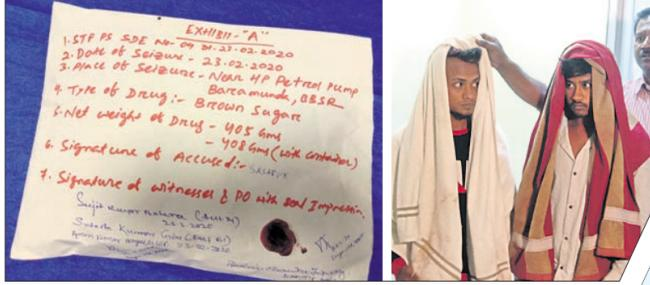 EXHIBIT-"A"
1. STF PS SDE No- 09 Dt. 23.02.2020
2. Date of Seizure - 23.02.2020
3. Place of Seizure - Near HP Petrol Pump
Baramunda, BBSR
4. Type of Drug:- Brown Sugar
5. Net weight of Drug - 405 Gms
- 408 Gms (with container)
6. Signature of Accused:-
7. Signature of witnesses & PO with seal Impression.
Kumar
Kumar